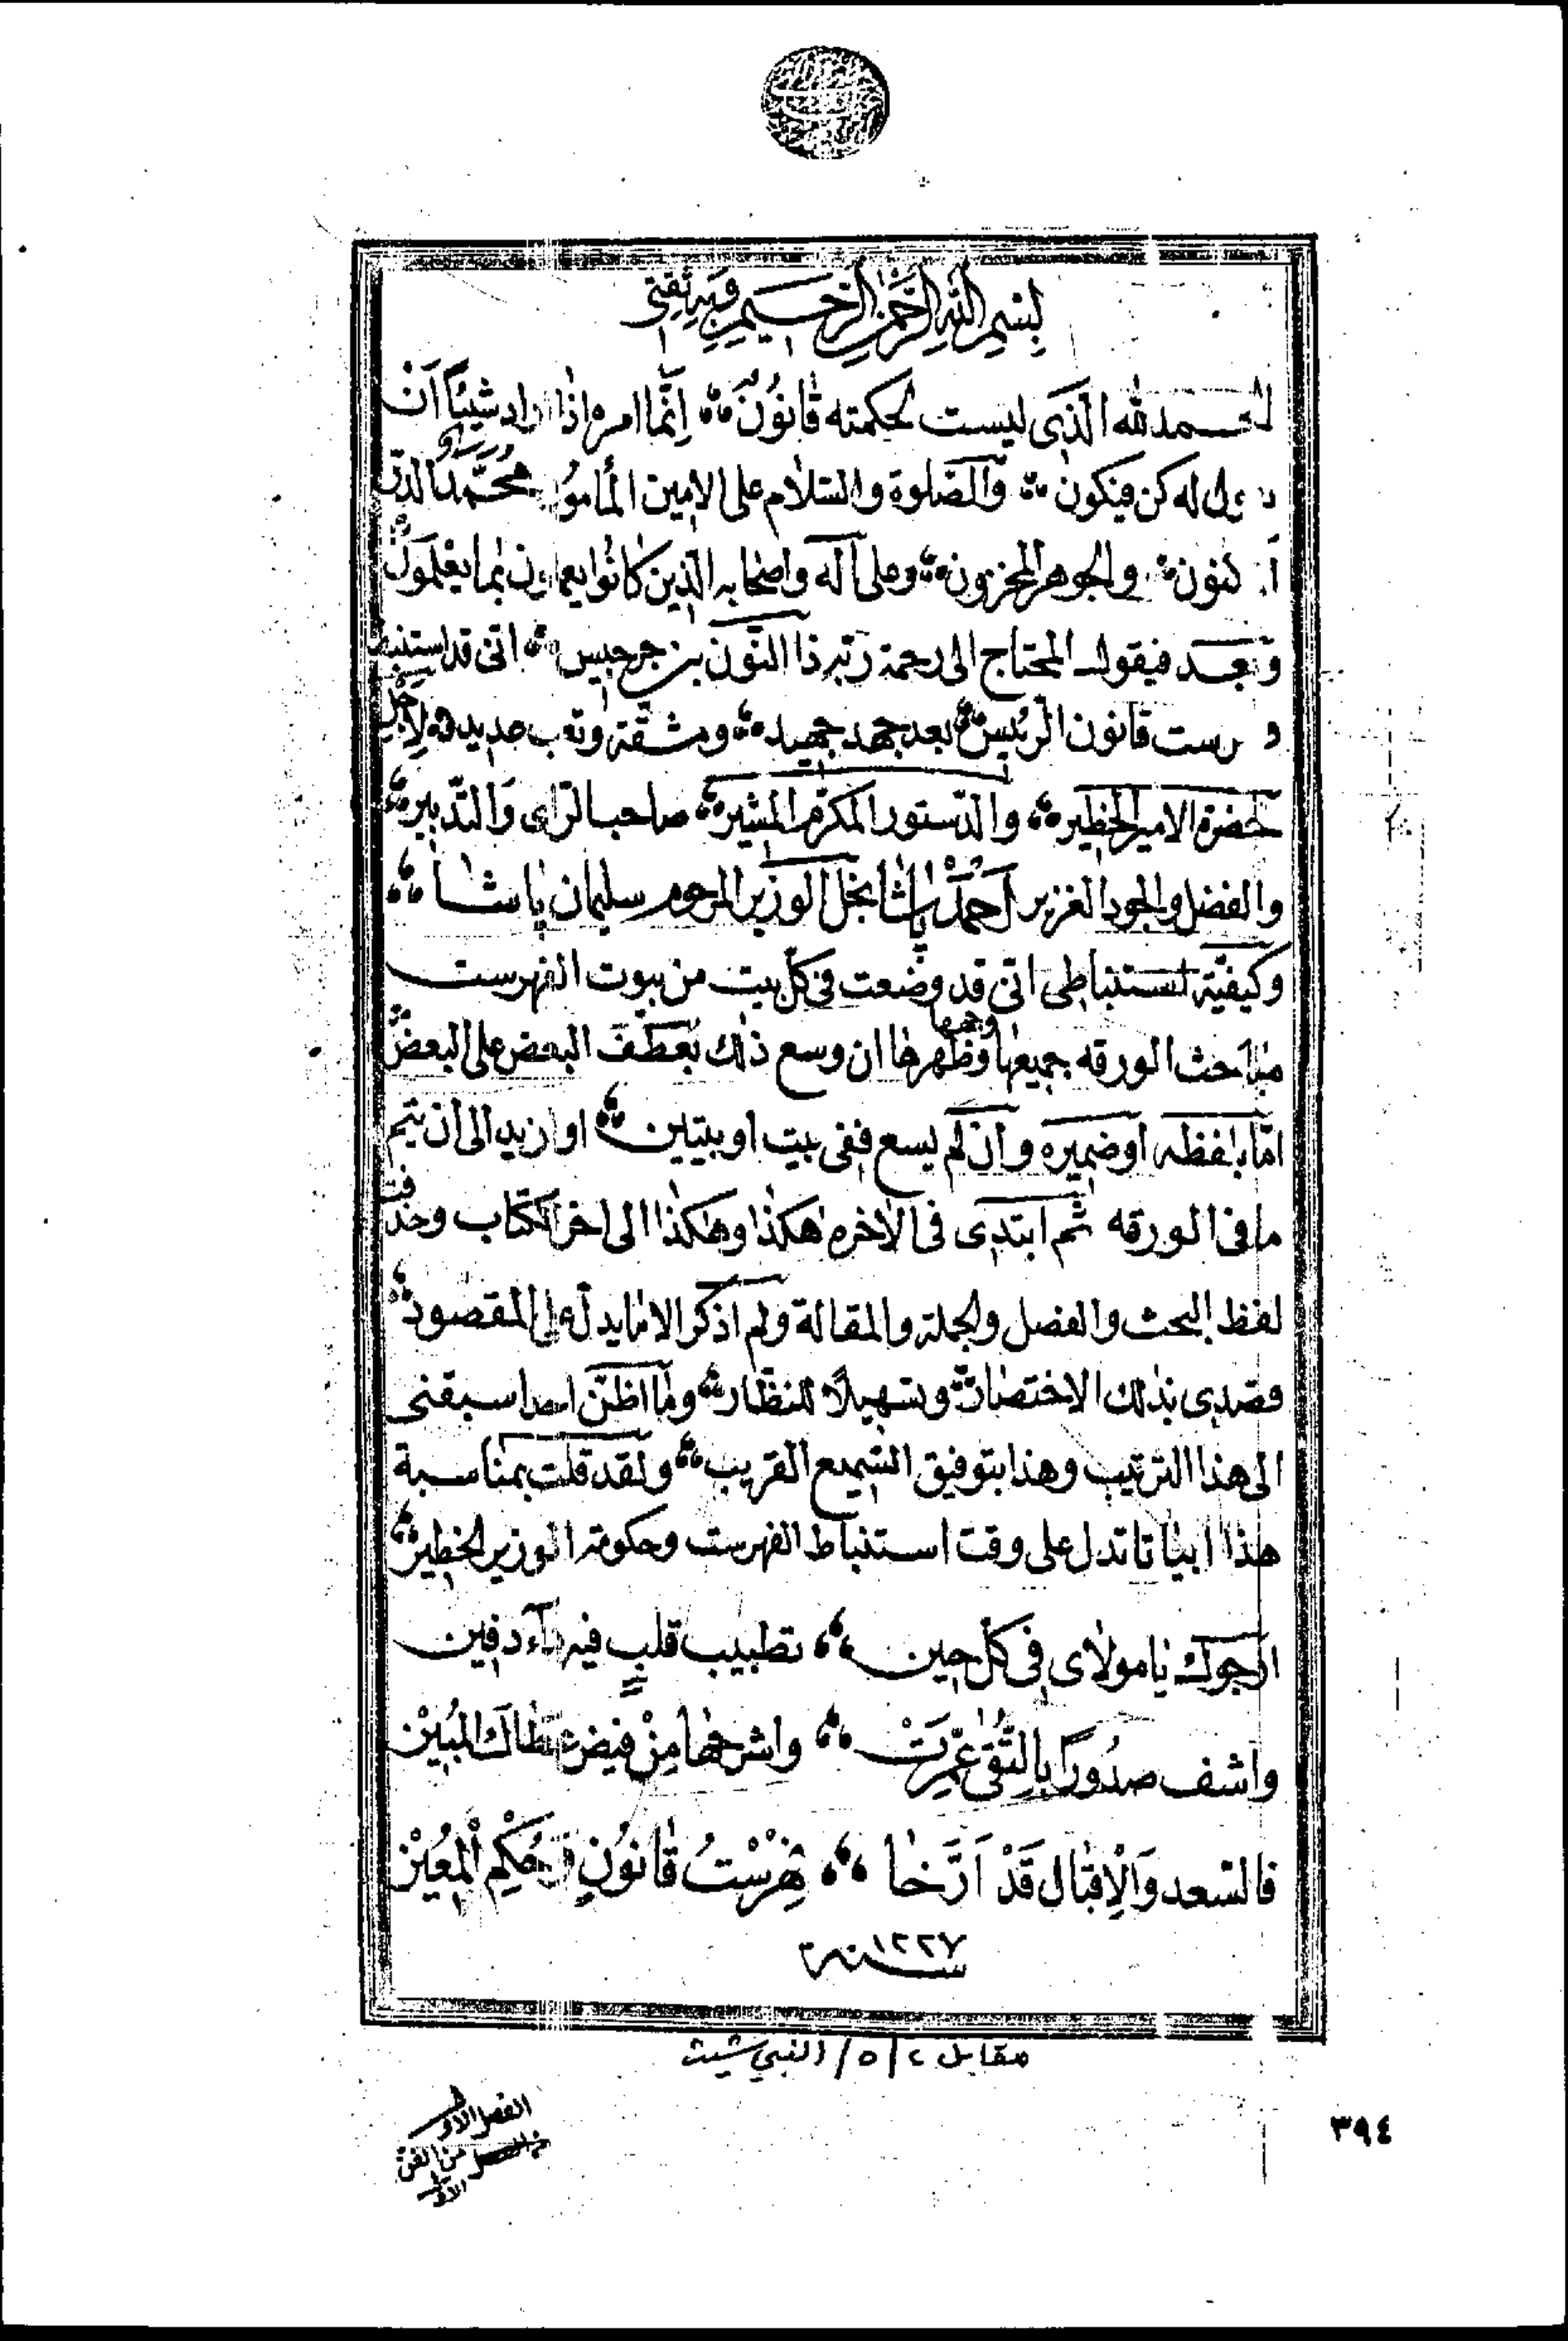 بِسْمِ اللهِ الرَّحْمٰنِ الرَّحِيمِ وَبِهِ ثِقَتِي
الحمد لله الّذى ليست لحكمته قانُونٌ اِنَّما امره اذا اراد شيئاً اَنْ
له كن فيكون والصّلوة والسّلام على الامين المأمون محُمَّد الدرّ
والجوهر المخزون وعلى آله واصحابه الّذين كانُوا يعملون بما يعْلمَونَ
وَبعَد فيقول المحتاج الى رحمة ربّه ذا النّون بن جرجيس انّى قد استنبطت
قانون الرّئيس بعد جهد جهيد ومشقّة وتعب حديد لِاَجل
حَضرة الامير الخطير والدّستور المكرّم المشير صاحب الرّاى وَالتّدبير
والفضل والجود الغزير اَحمَدْ پاشا نجَل الوزير المرحوم سليمان پاشا
وكيفيّة استنباطى انّى قد وضعت فى كلّ بيت من بيوت الفهرست
مباحث الورقه جميعها وجهها وظهرها ان وسع ذلك بَعطف البعض على البعض
امّا بلفظه اَوضميره وان لم يسع ففى بيت او بيتين او ازيد الى ان يتم
ما فى الورقه ثم ابتدى فى الاخره هكذا وهكذا الى اخر الكتاب وحذفت
لفظ البحث والفصل والجملة والمقالة ولم اذكر الا ما يدلّ على المقصود
وقصدى بذلك الاختصار وتسهيلاً للنظار وما اظنّ احدا سبقنى
الى هذا الترتيب وهذا بتوفيق السّميع القريب ولقد قلت بمناسبة
هذا ابياتا تدل على وقت استنباط الفهرست وحكومة الوزير الخطير
ارجوك يا مولاى فى كلّ حين تطبيب قلبٍ فيه دآء دفين
واشف صدُورًا بالتُّقى عمّرَتْ واشرحها مِنْ فيض عطاك المُبين
فالسّعد وَالْاِقبال قَدْ اَرَّخا فِهرْستُ قانُونٍ لمُعينْ
سنة ١٢٢٧
مقابل ٥/٢ / النبي شيث
٣٩٤
الفصل الاول
من الفن
الاول